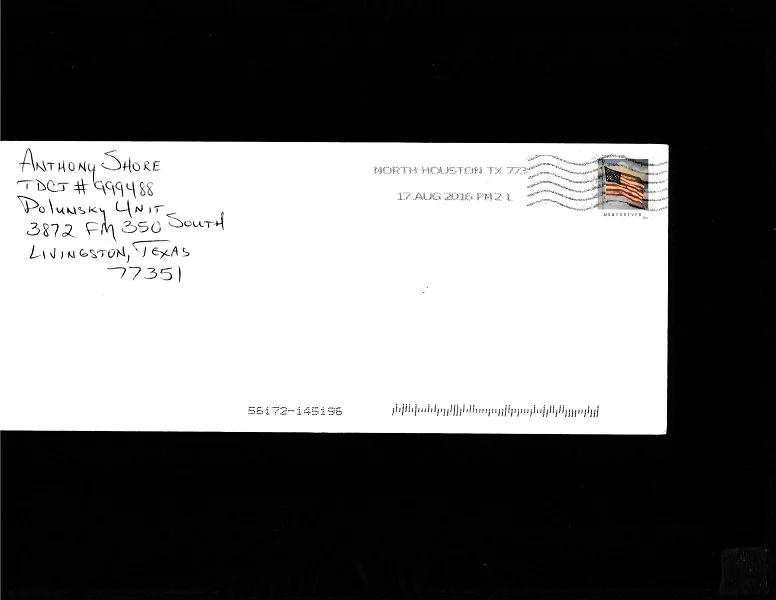 Anthony Shore
TDCJ # 999488
Polunsky Unit
3872 FM 350 South
Livingston, Texas
77351
NORTH HOUSTON TX 773
17 AUG 2016 PM 2 L
USA FOREVER
56172-145196